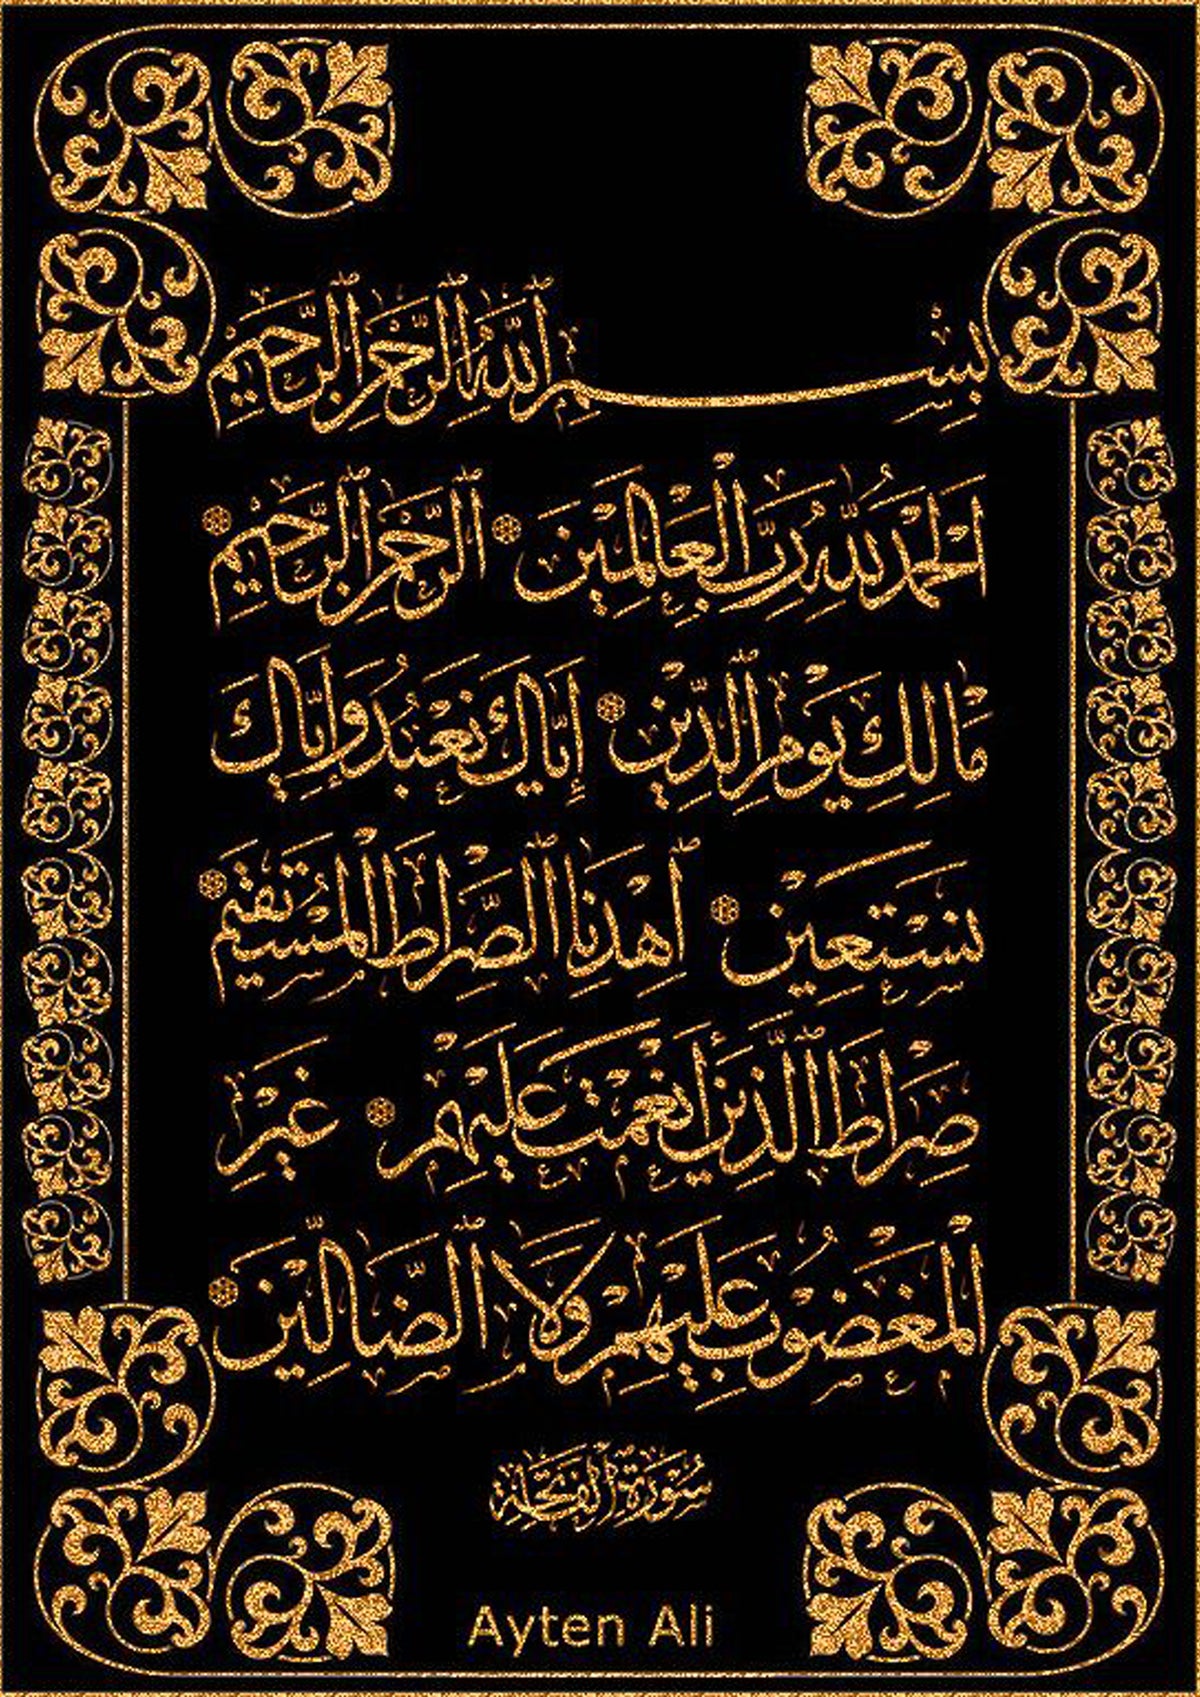 بِسْمِ ٱللَّهِ ٱلرَّحْمَٰنِ ٱلرَّحِيمِ
اَلْحَمْدُ لِلَّهِ رَبِّ الْعَالَمِينَ ۞ ٱلرَّحْمَٰنِ ٱلرَّحِيمِ ۞
مَالِكِ يَوْمِ ٱلدِّينِ ۞ إِيَّاكَ نَعْبُدُ وَإِيَّاكَ
نَسْتَعِينُ ۞ ٱهْدِنَا ٱلصِّرَاطَ ٱلْمُسْتَقِيمَ ۞
صِرَاطَ ٱلَّذِينَ أَنْعَمْتَ عَلَيْهِمْ ۞ غَيْرِ
ٱلْمَغْضُوبِ عَلَيْهِمْ وَلَا ٱلضَّالِّينَ ۞
سُورَةُ الْفَاتِحَةِ
Ayten Ali